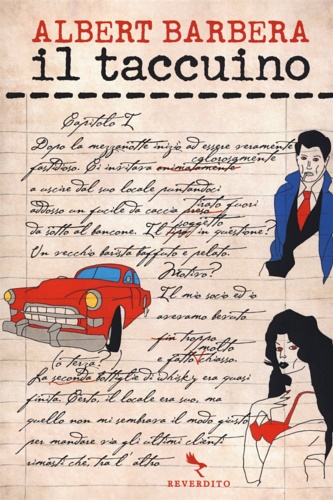 ALBERT BARBERA
il taccuino
Capitolo I
Dopo la mezzanotte iniziò ad essere veramente
calorosamente
fastidioso. Ci invitava animatamente
a uscire dal suo locale puntandoci
tirato fuori
addosso un fucile da caccia preso
soggetto
da sotto al bancone. Il tipo in questione?
Un vecchio barista baffuto e pelato.
Motivo?
Il mio socio ed io
avevamo bevuto
fin troppo
molto
e fatto chiasso.
(o terza?)
La seconda bottiglia di whisky era quasi
finita. Certo, il locale era suo, ma
quello non mi sembrava il modo giusto
per mandare via gli ultimi clienti
rimasti che tra l'altro
REVERDITO